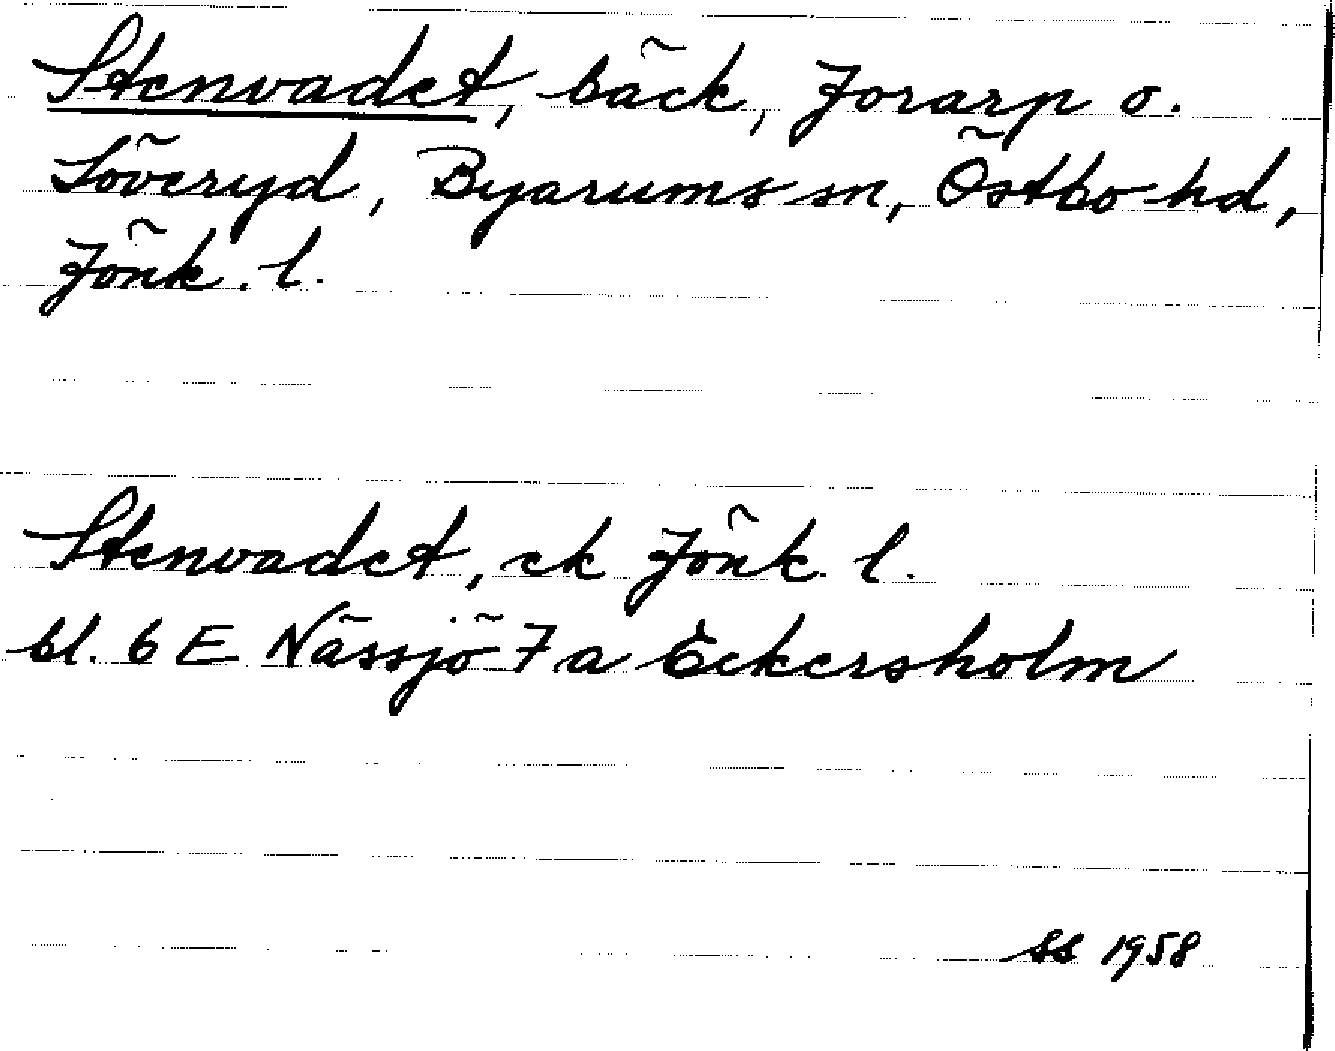 Stenvadet, bäck, Jorarp o.
Löveryd, Byarums sn, Östbo hd,
Jönk. l.
Stenvadet, ek Jönk. l.
bl. 6 E Nässjö 7 a Eckersholm
SS 1958